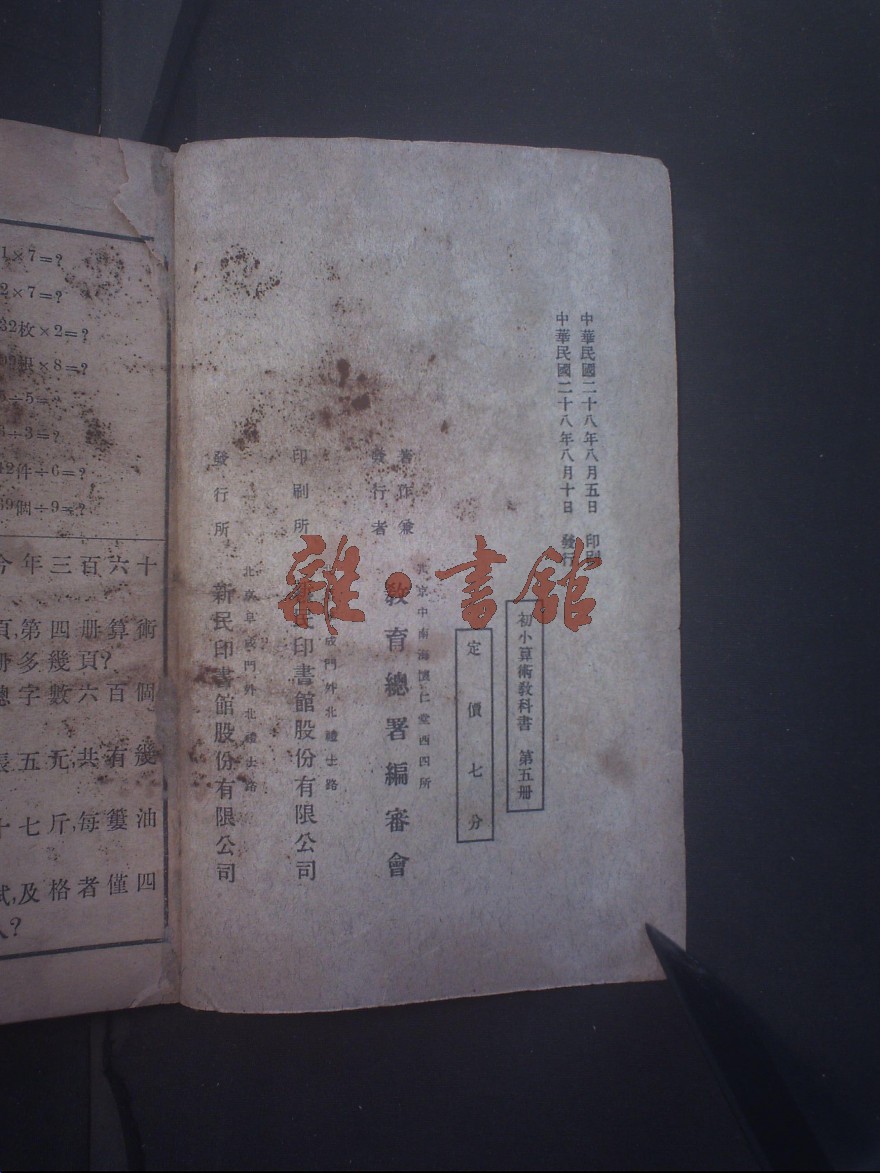 中華民國二十八年八月五日 印刷
中華民國二十八年八月十日 發行
初小算術教科書 第五册
定價七分
著作兼
發行者
北京中南海懷仁堂西四所
教育總署編審會
印刷所
成門外北禮士路
新民印書館股份有限公司
發行所
北京阜成門外北禮士路
新民印書館股份有限公司
雜·書館
1×7=?
2×7=?
32枚×2=?
×8=?
÷5=?
÷3=?
2件÷6=?
69個÷9=?
今年三百六十
頁,第四册算術
册多幾頁?
總字數六百個
長五元,共有幾
十七斤,每簍油
試,及格者僅四
人?